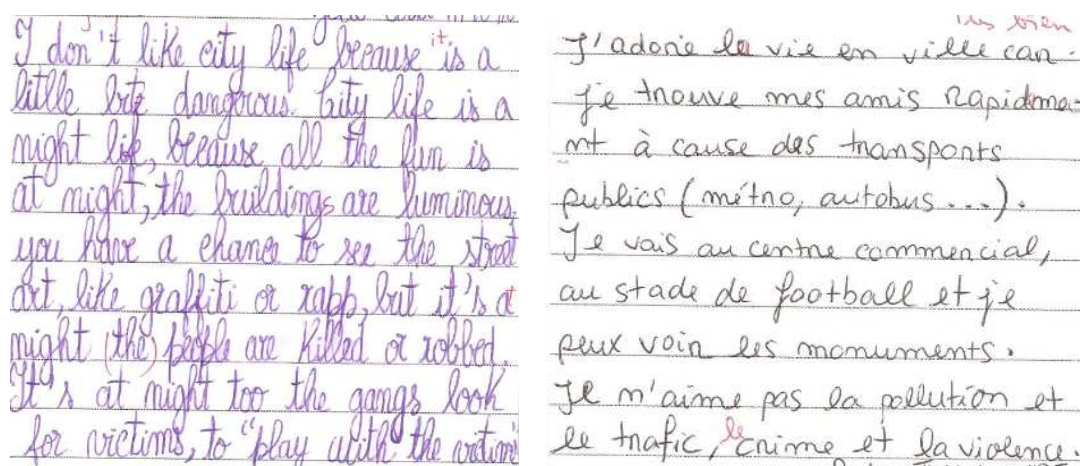 I don't like city life because it is a
little bite dangerous. City life is a
night life, because all the fun is
at night, the buildings are luminous,
you have a chance to see the street
art, like graffiti or rapp, but it's at
night (the) people are killed or robbed.
It's at night too the gangs look
for victims, to "play with the victims
très bien
J'adore la vie en ville car
je trouve mes amis rapideme-
nt à cause des transports
publics (métro, autobus...).
Je vais au centre commercial,
au stade de football et je
peux voir les monuments.
Je m'aime pas la pollution et
le trafic, le crime et la violence.